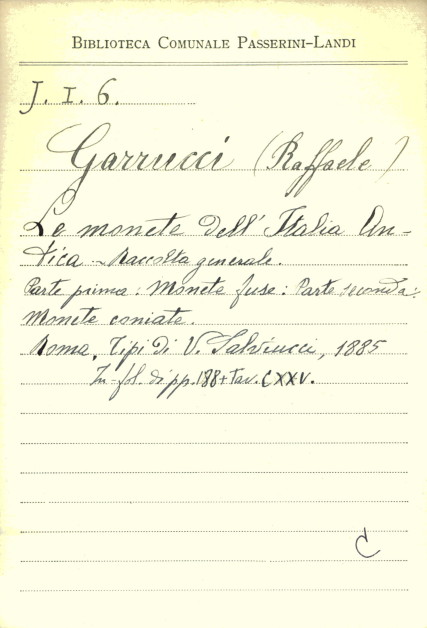 BIBLIOTECA COMUNALE PASSERINI-LANDI
J. I. 6.
Garrucci (Raffaele)
Le monete dell' Italia An-
tica - Raccolta generale.
Parte prima: Monete fuse: Parte seconda:
Monete coniate.
Roma, Tipi di V. Salviucci, 1885
In-fol. di pp. 188 + Tav. CXXV.
C